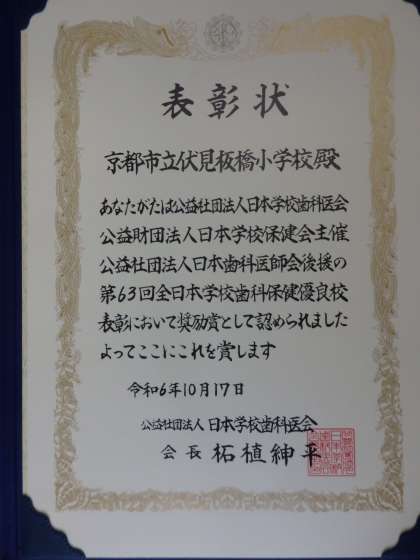 表彰状
京都市立伏見板橋小学校殿
あなたがたは公益社団法人日本学校歯科医会
公益財団法人日本学校保健会主催
公益社団法人日本歯科医師会後援の
第63回全日本学校歯科保健優良校
表彰において奨励賞として認められました
よってここにこれを賞します
令和6年10月17日
公益社団法人 日本学校歯科医会
会長 柘植紳平